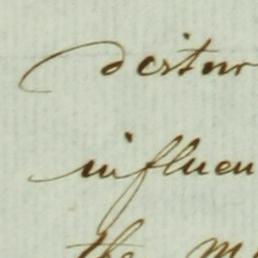 distur
influen
the m